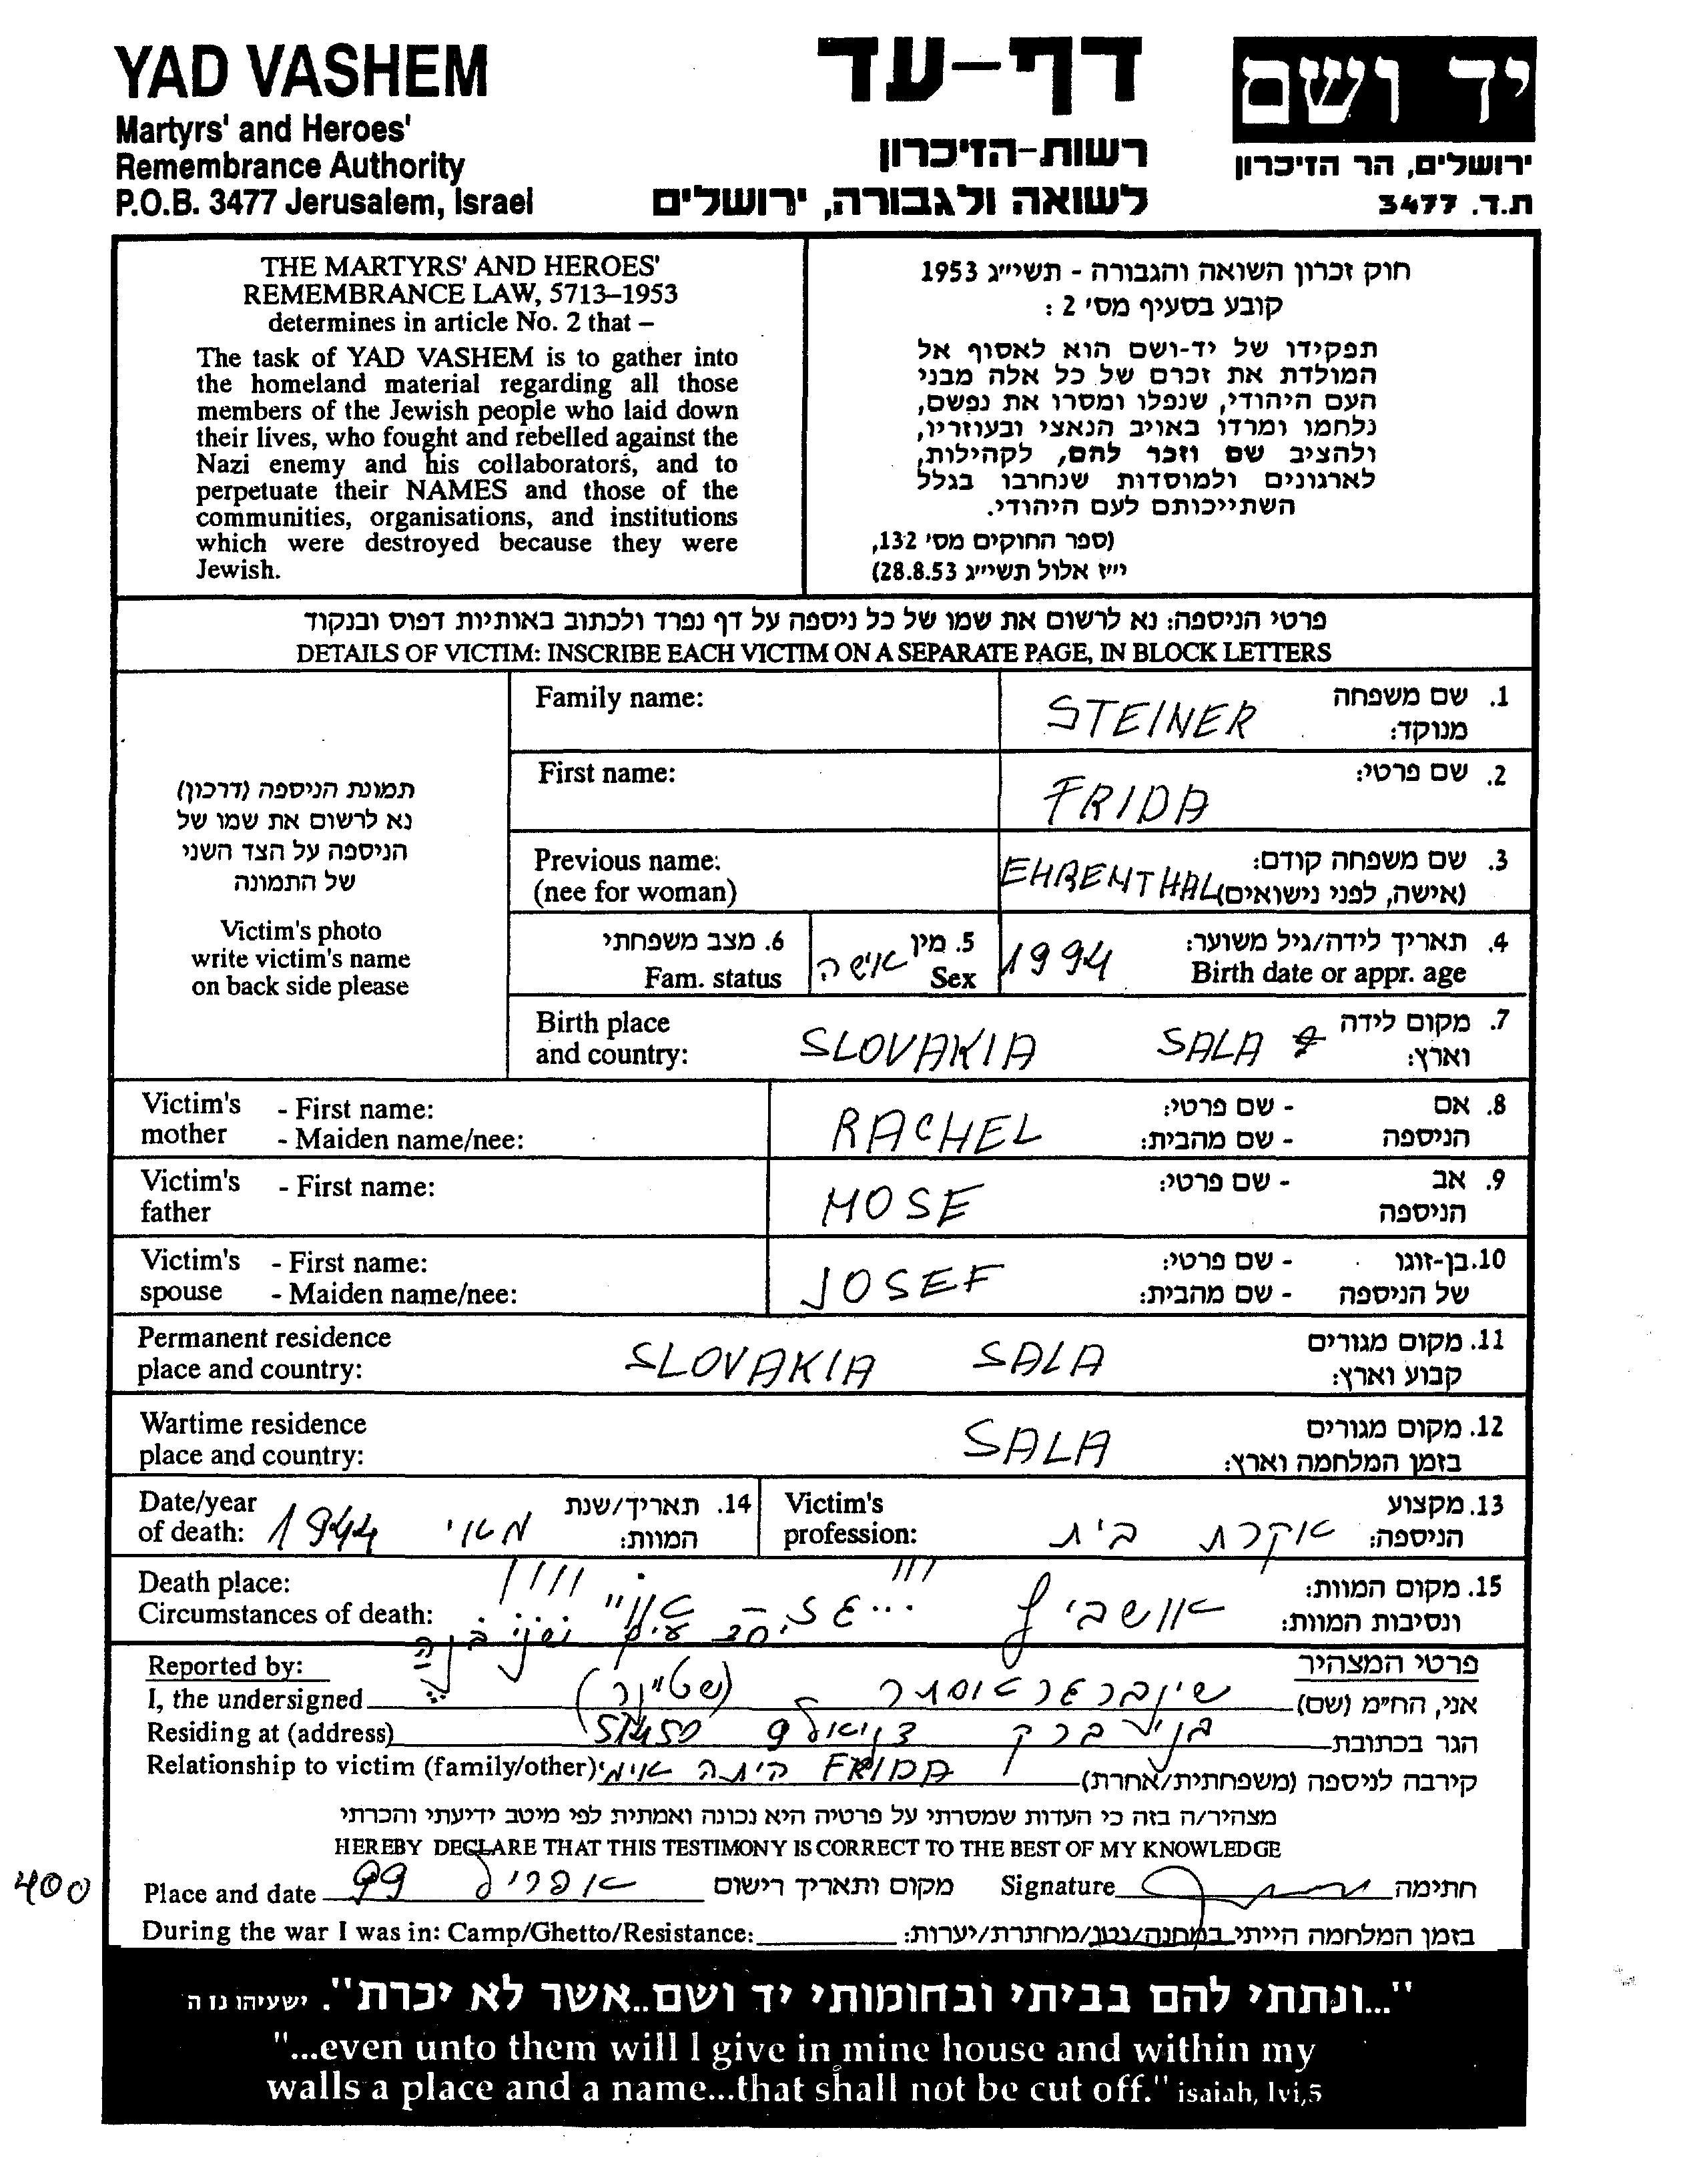 YAD VASHEM
Martyrs' and Heroes'
Remembrance Authority
P.O.B. 3477 Jerusalem, Israel
דף-עד
רשות-הזיכרון
לשואה ולגבורה, ירושלים
יד ושם
ירושלים, הר הזיכרון
ת.ד. 3477
THE MARTYRS' AND HEROES'
REMEMBRANCE LAW, 5713–1953
determines in article No. 2 that –
The task of YAD VASHEM is to gather into
the homeland material regarding all those
members of the Jewish people who laid down
their lives, who fought and rebelled against the
Nazi enemy and his collaborators, and to
perpetuate their NAMES and those of the
communities, organisations, and institutions
which were destroyed because they were
Jewish.
חוק זכרון השואה והגבורה - תשי״ג 1953
קובע בסעיף מס' 2 :
תפקידו של יד-ושם הוא לאסוף אל
המולדת את זכרם של כל אלה מבני
העם היהודי, שנפלו ומסרו את נפשם,
נלחמו ומרדו באויב הנאצי ובעוזריו,
ולהציב שם וזכר להם, לקהילות,
לארגונים ולמוסדות שנחרבו בגלל
השתייכותם לעם היהודי.
(ספר החוקים מס' 132,
י״ז אלול תשי״ג 28.8.53)
פרטי הניספה: נא לרשום את שמו של כל ניספה על דף נפרד ולכתוב באותיות דפוס ובנקוד
DETAILS OF VICTIM: INSCRIBE EACH VICTIM ON A SEPARATE PAGE, IN BLOCK LETTERS
תמונת הניספה (דרכון)
נא לרשום את שמו של
הניספה על הצד השני
של התמונה
Victim's photo
write victim's name
on back side please
Family name: STEINER 1. שם משפחה
מנוקד:
First name: FRIDA 2. שם פרטי:
Previous name: EHRENTHAL 3. שם משפחה קודם:
(nee for woman) (אישה, לפני נישואים)
6. מצב משפחתי 5. מין אישה 1994 4. תאריך לידה/גיל משוער:
Fam. status Sex Birth date or appr. age
Birth place SLOVAKIA SALA 7. מקום לידה
and country: וארץ:
Victim's - First name: RACHEL - שם פרטי: 8. אם
mother - Maiden name/nee: - שם מהבית: הניספה
Victim's - First name: MOSE - שם פרטי: 9. אב
father הניספה
Victim's - First name: JOSEF - שם פרטי: 10. בן-זוגו
spouse - Maiden name/nee: - שם מהבית: של הניספה
Permanent residence SLOVAKIA SALA 11. מקום מגורים
place and country: קבוע וארץ:
Wartime residence SALA 12. מקום מגורים
place and country: בזמן המלחמה וארץ:
Date/year 1944 מאי 14. תאריך/שנת
of death: המוות:
Victim's עקרת בית 13. מקצוע
profession: הניספה:
Death place: אושביץ 15. מקום המוות:
Circumstances of death: ונסיבות המוות:
Reported by: פרטי המצהיר
I, the undersigned (שטיינר) שינברגר אסתר אני, הח״מ (שם)
Residing at (address) 51450 9 בני ברק הגר בכתובת
Relationship to victim (family/other) FRIDA היתה אימי קירבה לניספה (משפחתית/אחרת)
מצהיר/ה בזה כי העדות שמסרתי על פרטיה היא נכונה ואמתית לפי מיטב ידיעתי והכרתי
HEREBY DECLARE THAT THIS TESTIMONY IS CORRECT TO THE BEST OF MY KNOWLEDGE
400
Place and date 99 אפריל מקום ותאריך רישום Signature חתימה
During the war I was in: Camp/Ghetto/Resistance: בזמן המלחמה הייתי במחנה/גטו/מחתרת/יערות:
"...ונתתי להם בביתי ובחומותי יד ושם..אשר לא יכרת". ישעיהו נו ה
"...even unto them will I give in mine house and within my
walls a place and a name...that shall not be cut off." isaiah, lvi,5